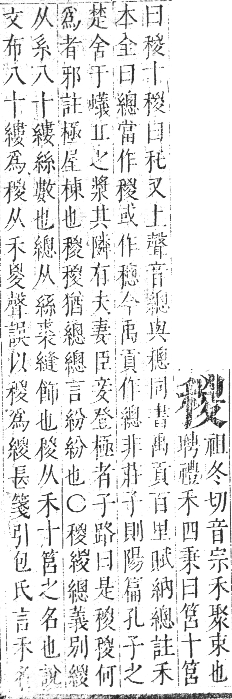 稯
祖冬切音宗禾聚束也
聘禮禾四秉曰筥十筥
曰稯十稯曰秅又上聲音總與穗同書禹貢百里賦納總註禾
本全曰總當作稯或作穗今禹貢作總非莊子則陽篇孔子之
楚舍于蟻丘之漿其隣有夫妻臣妾登極者子路曰是稯稯何
爲者邪註極屋棟也稯稯猶總總言紛紛也○稯緵總義別緵
从系八十縷絲數也總从絲裘縫飾也稯从禾十筥之名也說
文布八十縷爲稯从禾㚇聲誤以稯爲緵長箋引包氏言禾